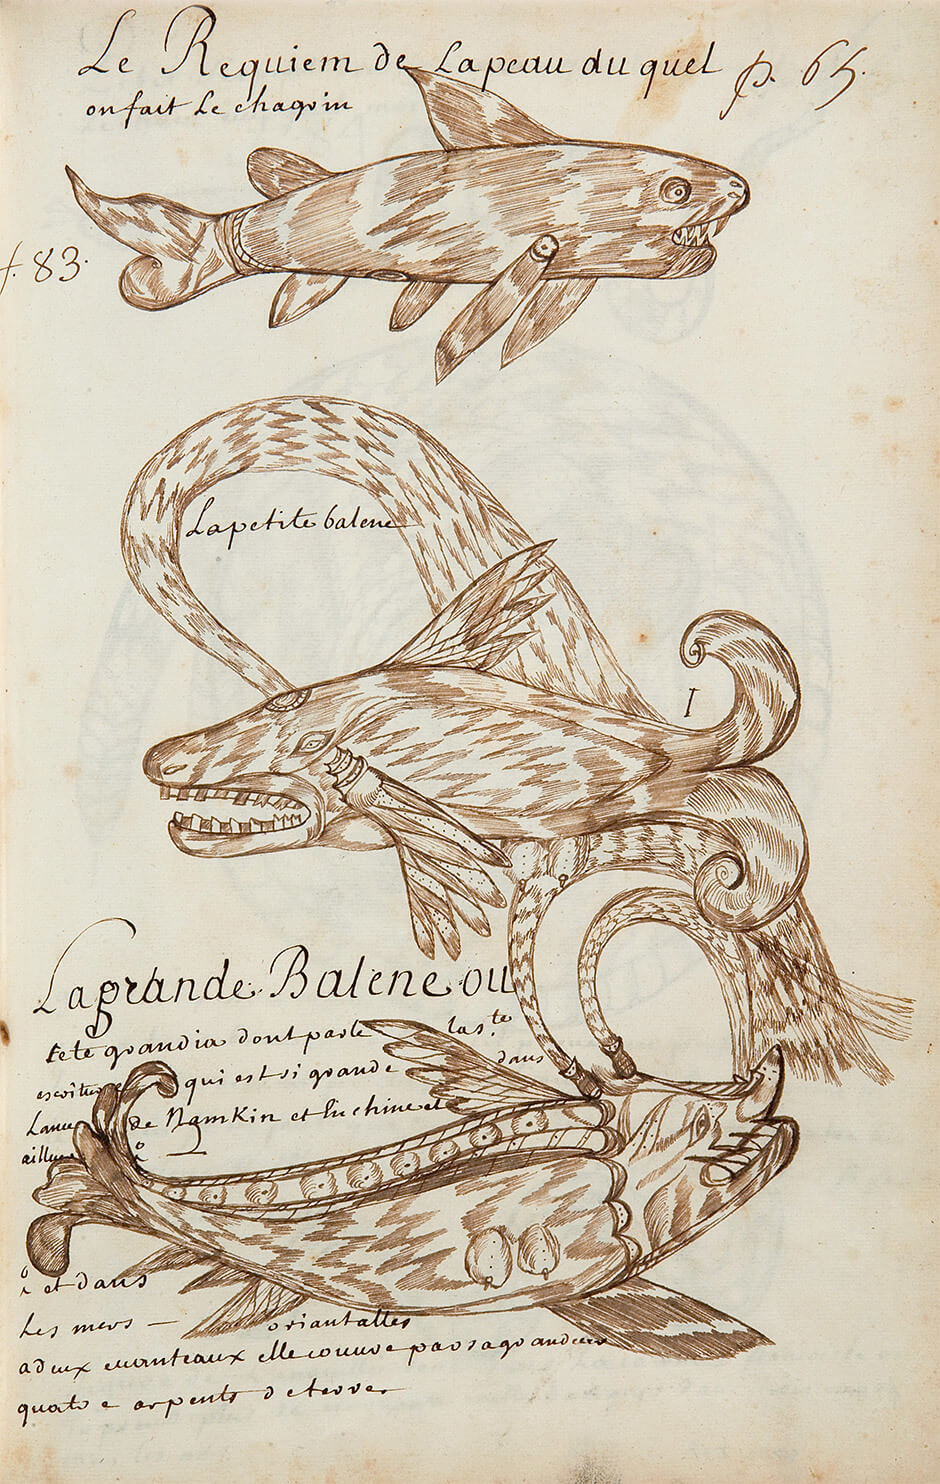 Le Requiem de Lapeau du quel
on fait Le chagrin
p. 65.
f. 83.
La petite balene
I
La grande Balene ou
tete grandia dont parle la s.te
escriture qui est si grande dans
de Namkin et
et dans
Les mers — oriantalles
a deux euanteaux elle couure par sa grandeur
quatre arpents de terre